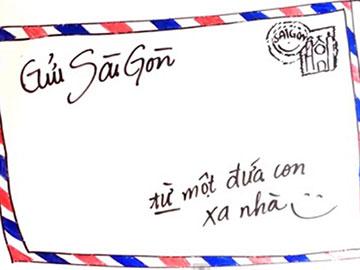 Gửi Sài Gòn
SAIGON
từ một đứa con
xa nhà